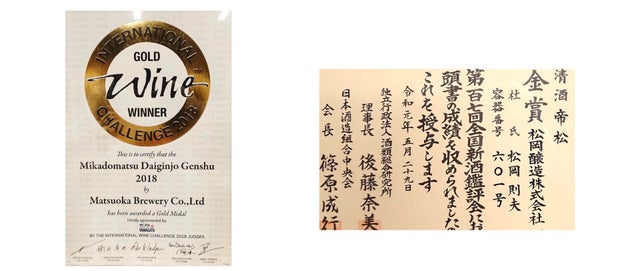 INTERNATIONAL
GOLD
Wine
WINNER
CHALLENGE 2018
This is to certify that the
Mikadomatsu Daiginjo Genshu
2018
by
Matsuoka Brewery Co.,Ltd
has been awarded a Gold Medal
Kindly sponsored by
YAMAGATA
BY THE INTERNATIONAL WINE CHALLENGE 2018 JUDGES
清酒 帝松
金賞 松岡醸造株式会社
杜氏 松岡則夫
容器番号 六〇一号
第百七回全国新酒鑑評会にお
頭書の成績を収められました
これを授与します
令和元年五月二十九日
独立行政法人酒類総合研究所
理事長 後藤奈美
日本酒造組合中央会
会長 篠原成行